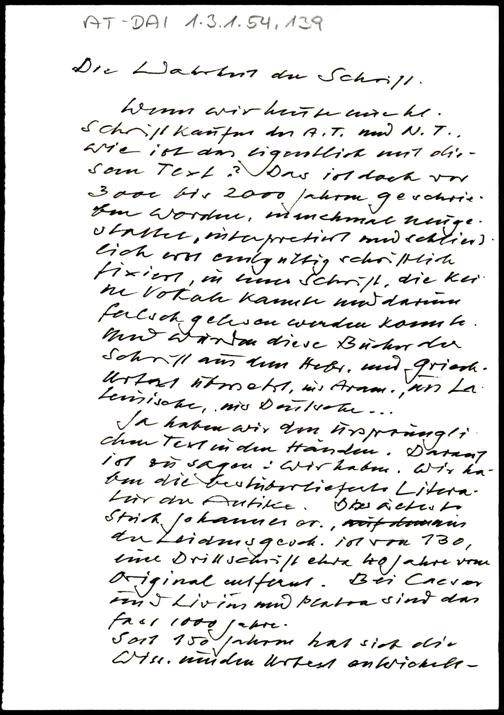 AT-DAI 1.3.1.54.139
Die Wahrheit der Schrift.
Wenn wir heute eine hl.
Schrift kaufen des A.T. und N.T.,
wie ist das eigentlich mit die-
sem Text? Das ist doch vor
3000 bis 2000 Jahren geschrie-
ben worden, manchmal neuge-
staltet, interpretiert und schließ-
lich erst endgültig schriftlich
fixiert, in einer Schrift, die kei
ne Vokale kannte und darum
falsch gelesen werden konnte.
Und wurden diese Bücher der
Schrift aus dem Hebr. und Griech.
Urtext übersetzt, ins Aram., ins La
teinische, ins Deutsche...
Ja haben wir den ursprüngli
chen Text in den Händen. Darauf
ist zu sagen: Wir haben. Wir ha-
ben die bestüberlieferte Litera-
tur der Antike. Das älteste
Stück Johannes ev.,
der Leidensgesch. ist von 130,
eine Drittschrift etwa 40 Jahre vom
Original entfernt. Bei Caesar
und Livius und Platon sind das
fast 1000 Jahre.
Seit 150 Jahren hat sich die
Wiss. um den Urtext entwickelt-